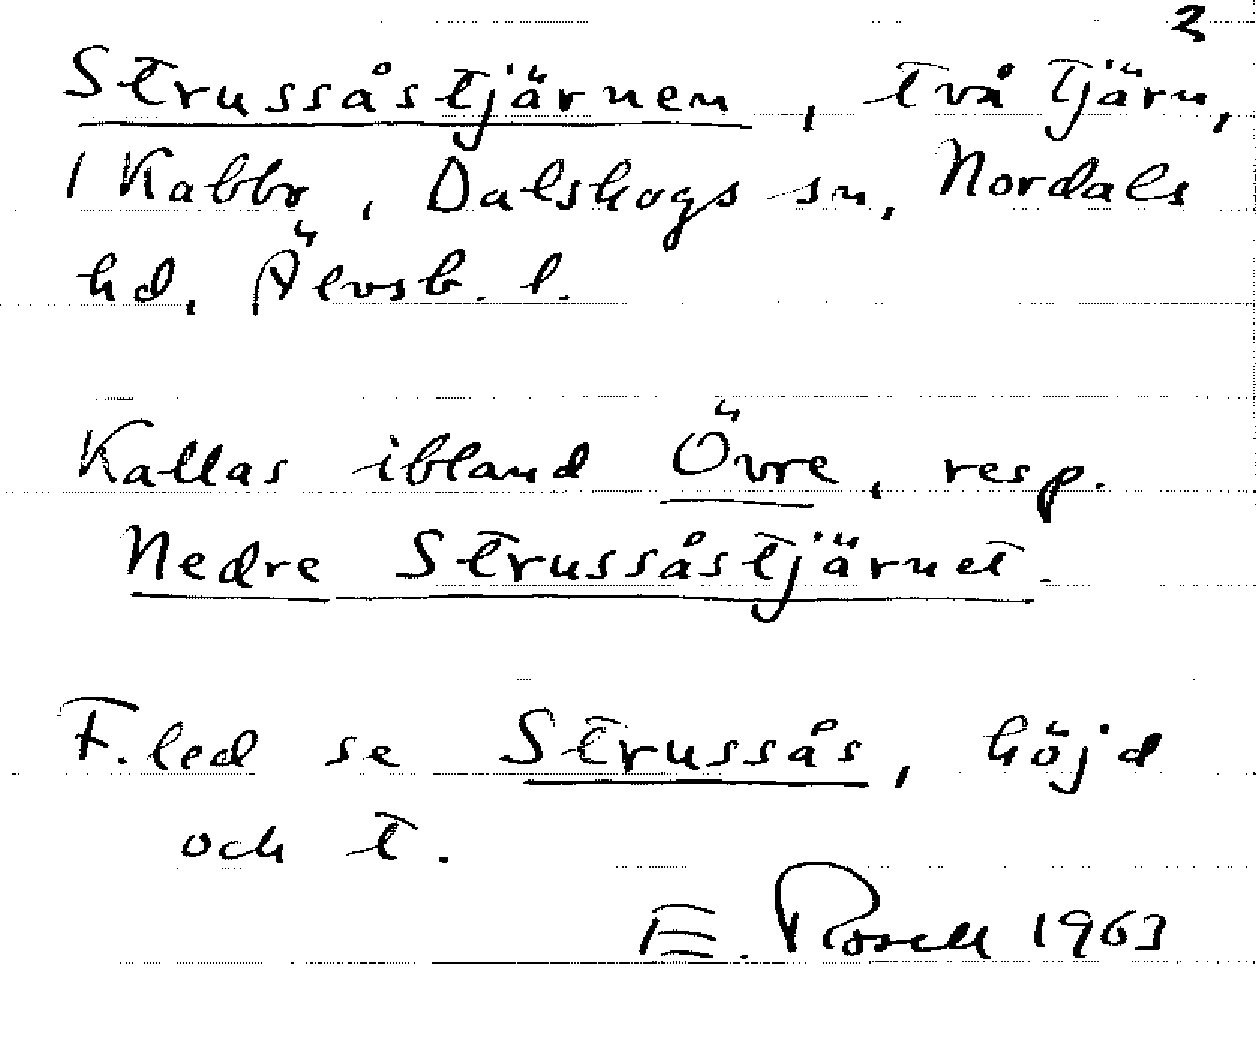 2
Strussåstjärnen, två tjärn,
1 Kabbo, Dalskogs sn, Nordals
hd, Älvsb. l.
Kallas ibland Övre, resp.
Nedre Strussåstjärnet.
F.led se Strussås, höjd
och t.
E. Rosell 1963